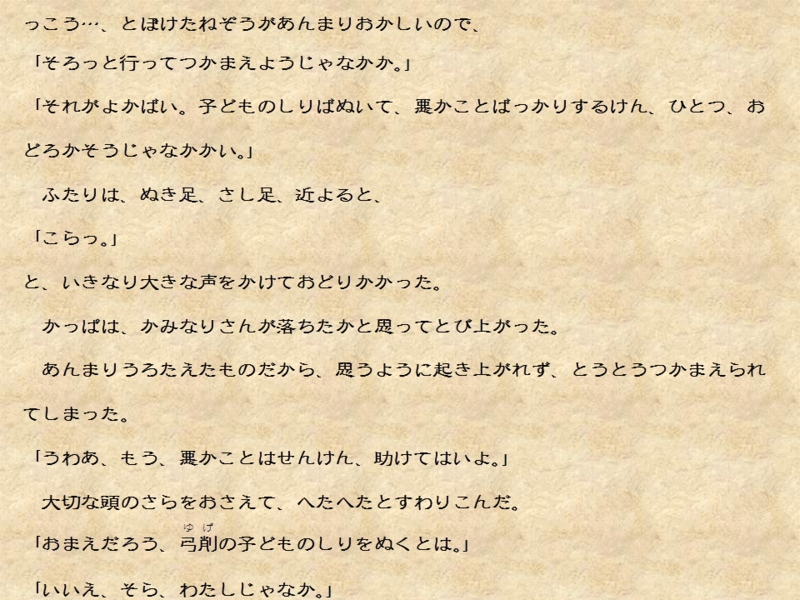 っこう…、とぼけたねぞうがあんまりおかしいので、
「そろっと行ってつかまえようじゃなかか。」
「それがよかばい。子どものしりばぬいて、悪かことばっかりするけん、ひとつ、お
どろかそうじゃなかかい。」
　ふたりは、ぬき足、さし足、近よると、
「こらっ。」
と、いきなり大きな声をかけておどりかかった。
　かっぱは、かみなりさんが落ちたかと思ってとび上がった。
　あんまりうろたえたものだから、思うように起き上がれず、とうとうつかまえられ
てしまった。
「うわあ、もう、悪かことはせんけん、助けてはいよ。」
　大切な頭のさらをおさえて、へたへたとすわりこんだ。
ゆげ
「おまえだろう、弓削の子どものしりをぬくとは。」
「いいえ、そら、わたしじゃなか。」